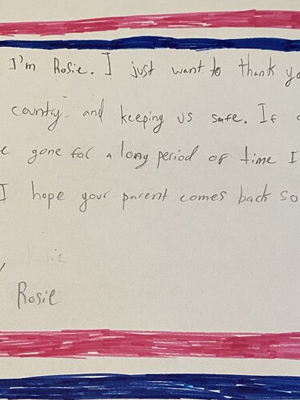 I'm Rosie. I just want to thank yo
country and keeping us safe. If
e gone for a long period of time I
I hope your parent comes back so
Rosie